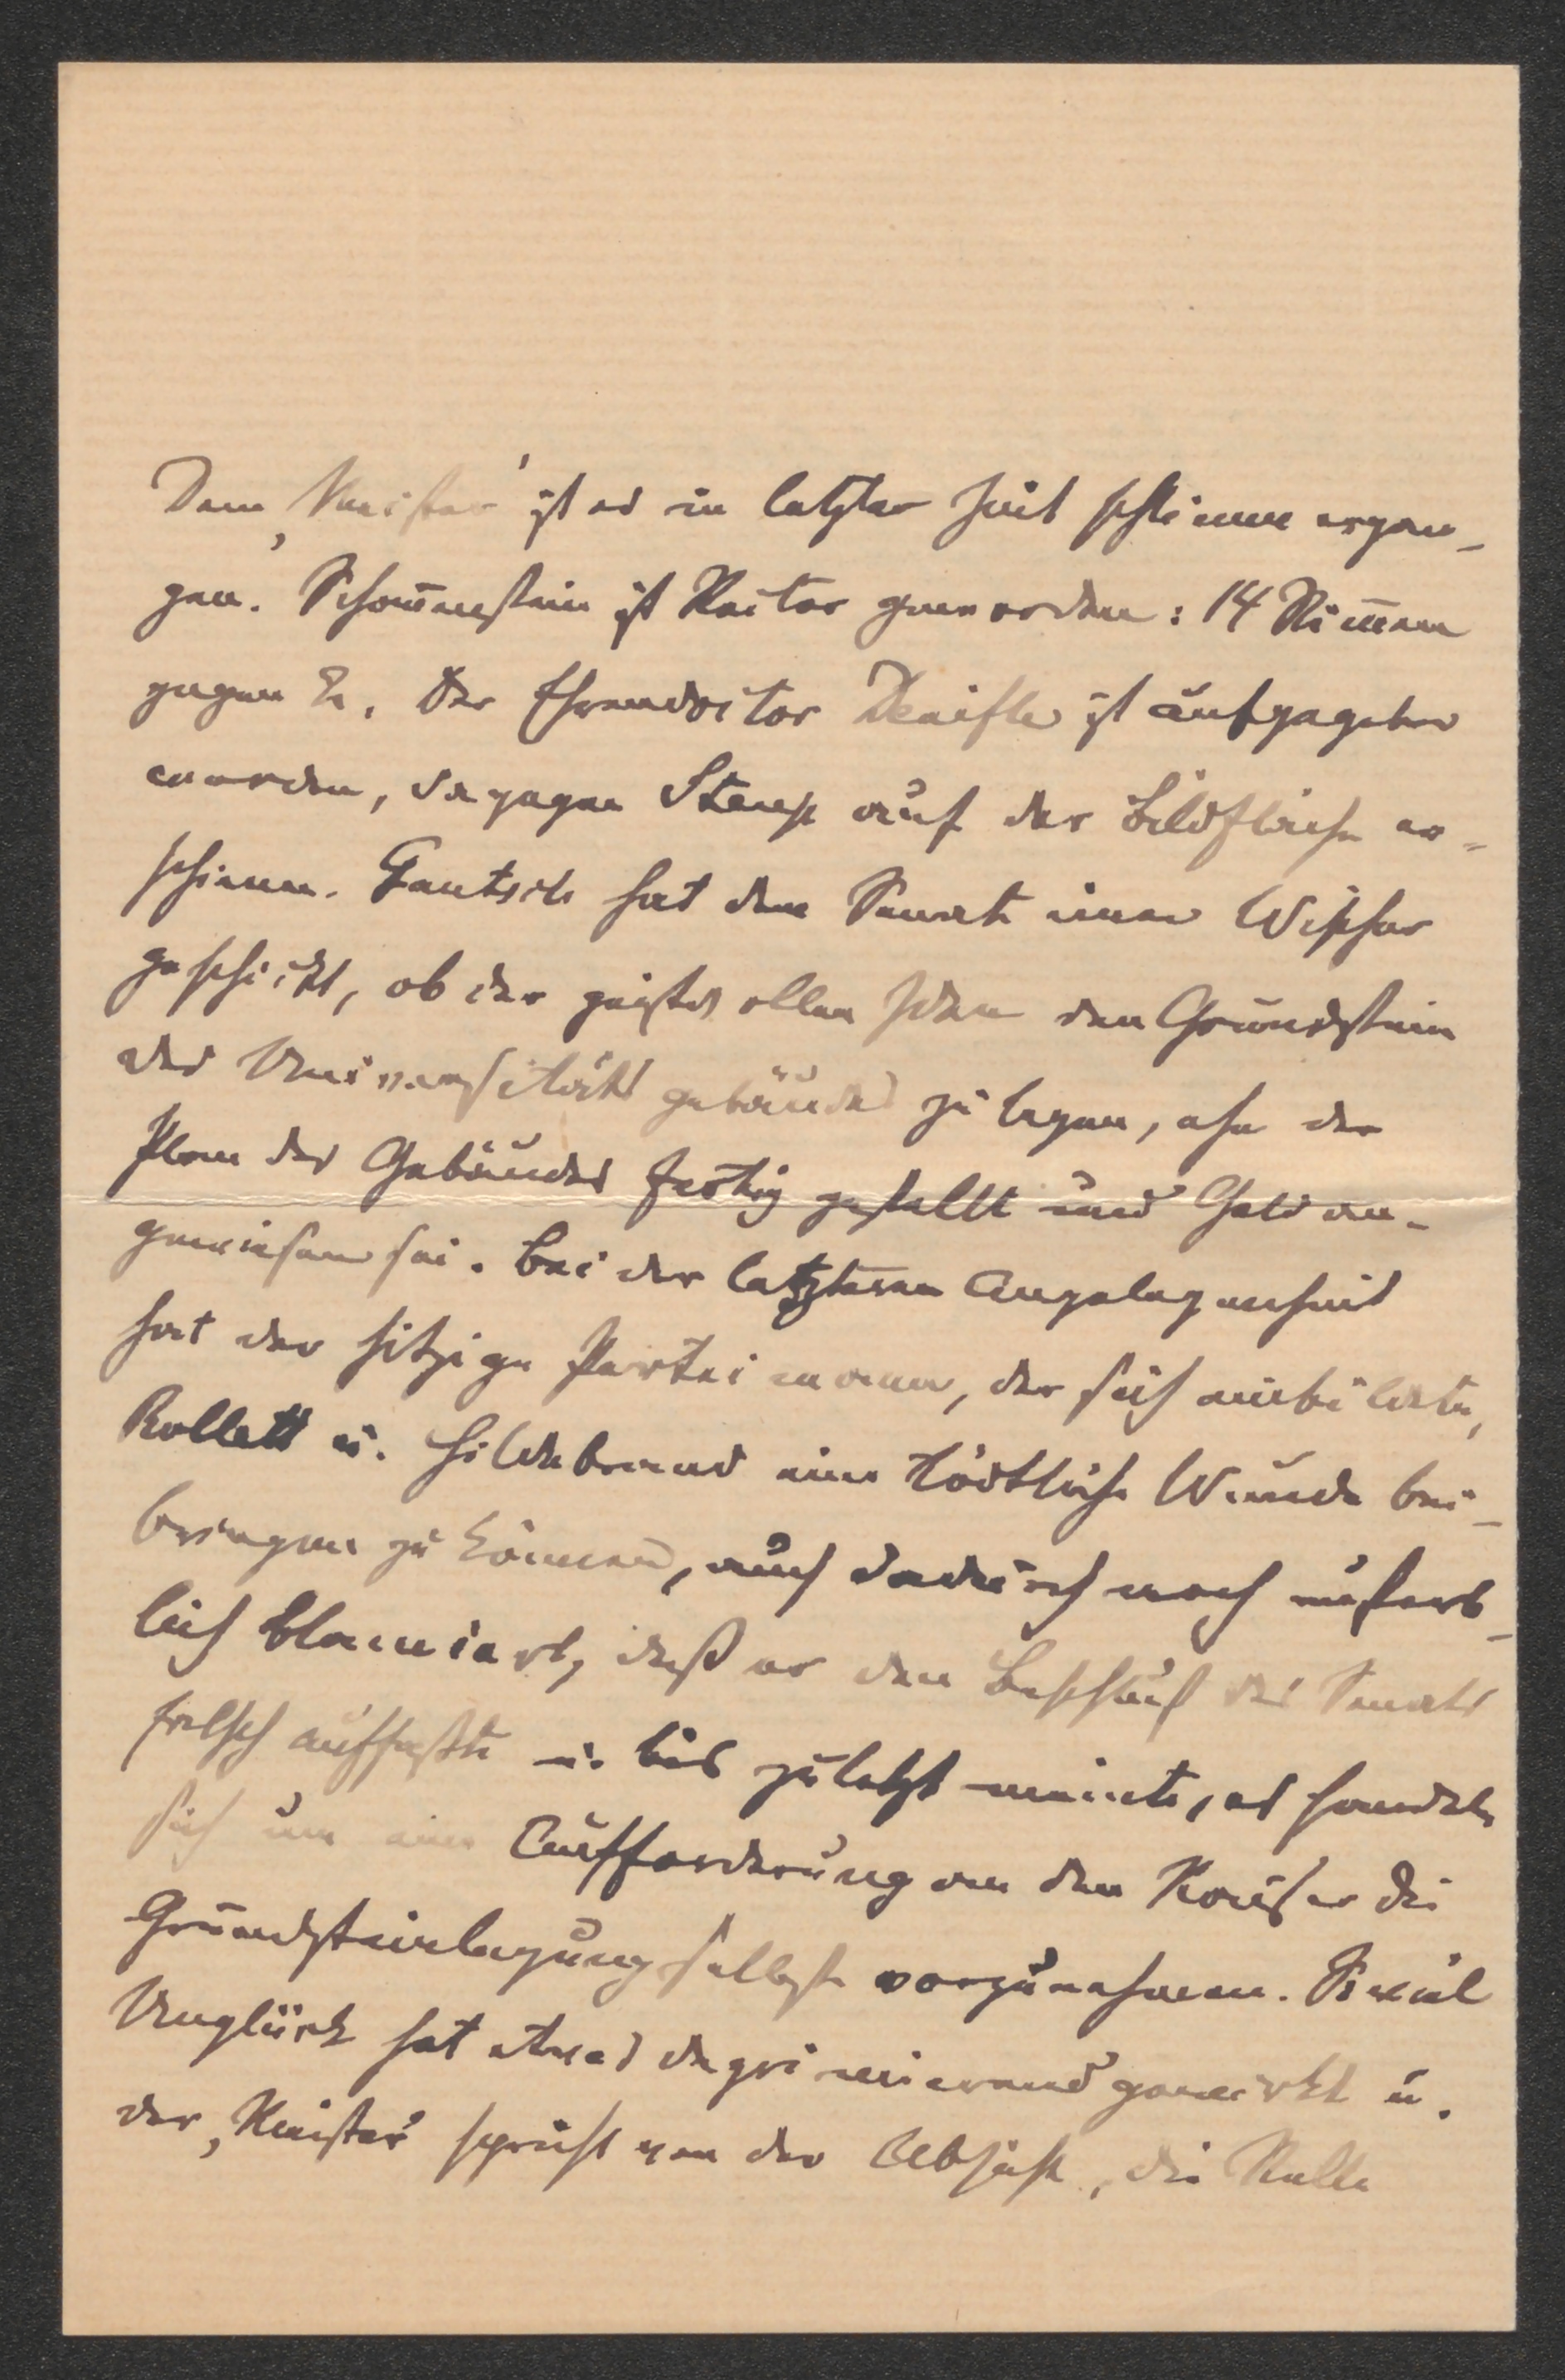 Dem ‚Meister' ist es in letzter Zeit schlimm ergan-
gen. Schönenstein ist Rector geworden: 14 Stimmen
gegen 2. Der Ehrendoctor Denifle ist aufgegeben
worden, dagegen Stampe auf der Bildfläche er-
schienen. Gautsch hat dem Senate einen Wischer
geschickt, ob der geistvollen Idee den Grundstein
des Universitätsgebäudes zu legen, ehe der
Plan des Gebäudes fertig gestellt und Geld an-
gewiesen sei. Bei der letzteren Angelegenheit
hat der hitzige Parteimann, der sich einbildete,
Rollett u. Hildebrand eine tödtliche Wunde bei-
bringen zu können, auch dadurch noch unsterb-
lich blamiert, daß er den Beschluß des Senats
falsch auffaßte u. bis zuletzt meinte, es handele
sich um eine Aufforderung an den Kaiser die
Grundsteinlegung selbst vorzunehmen. Soviel
Unglück hat etwas deprimierend gewirkt u.
der ‚Meister' spricht von der Absicht, die Stelle